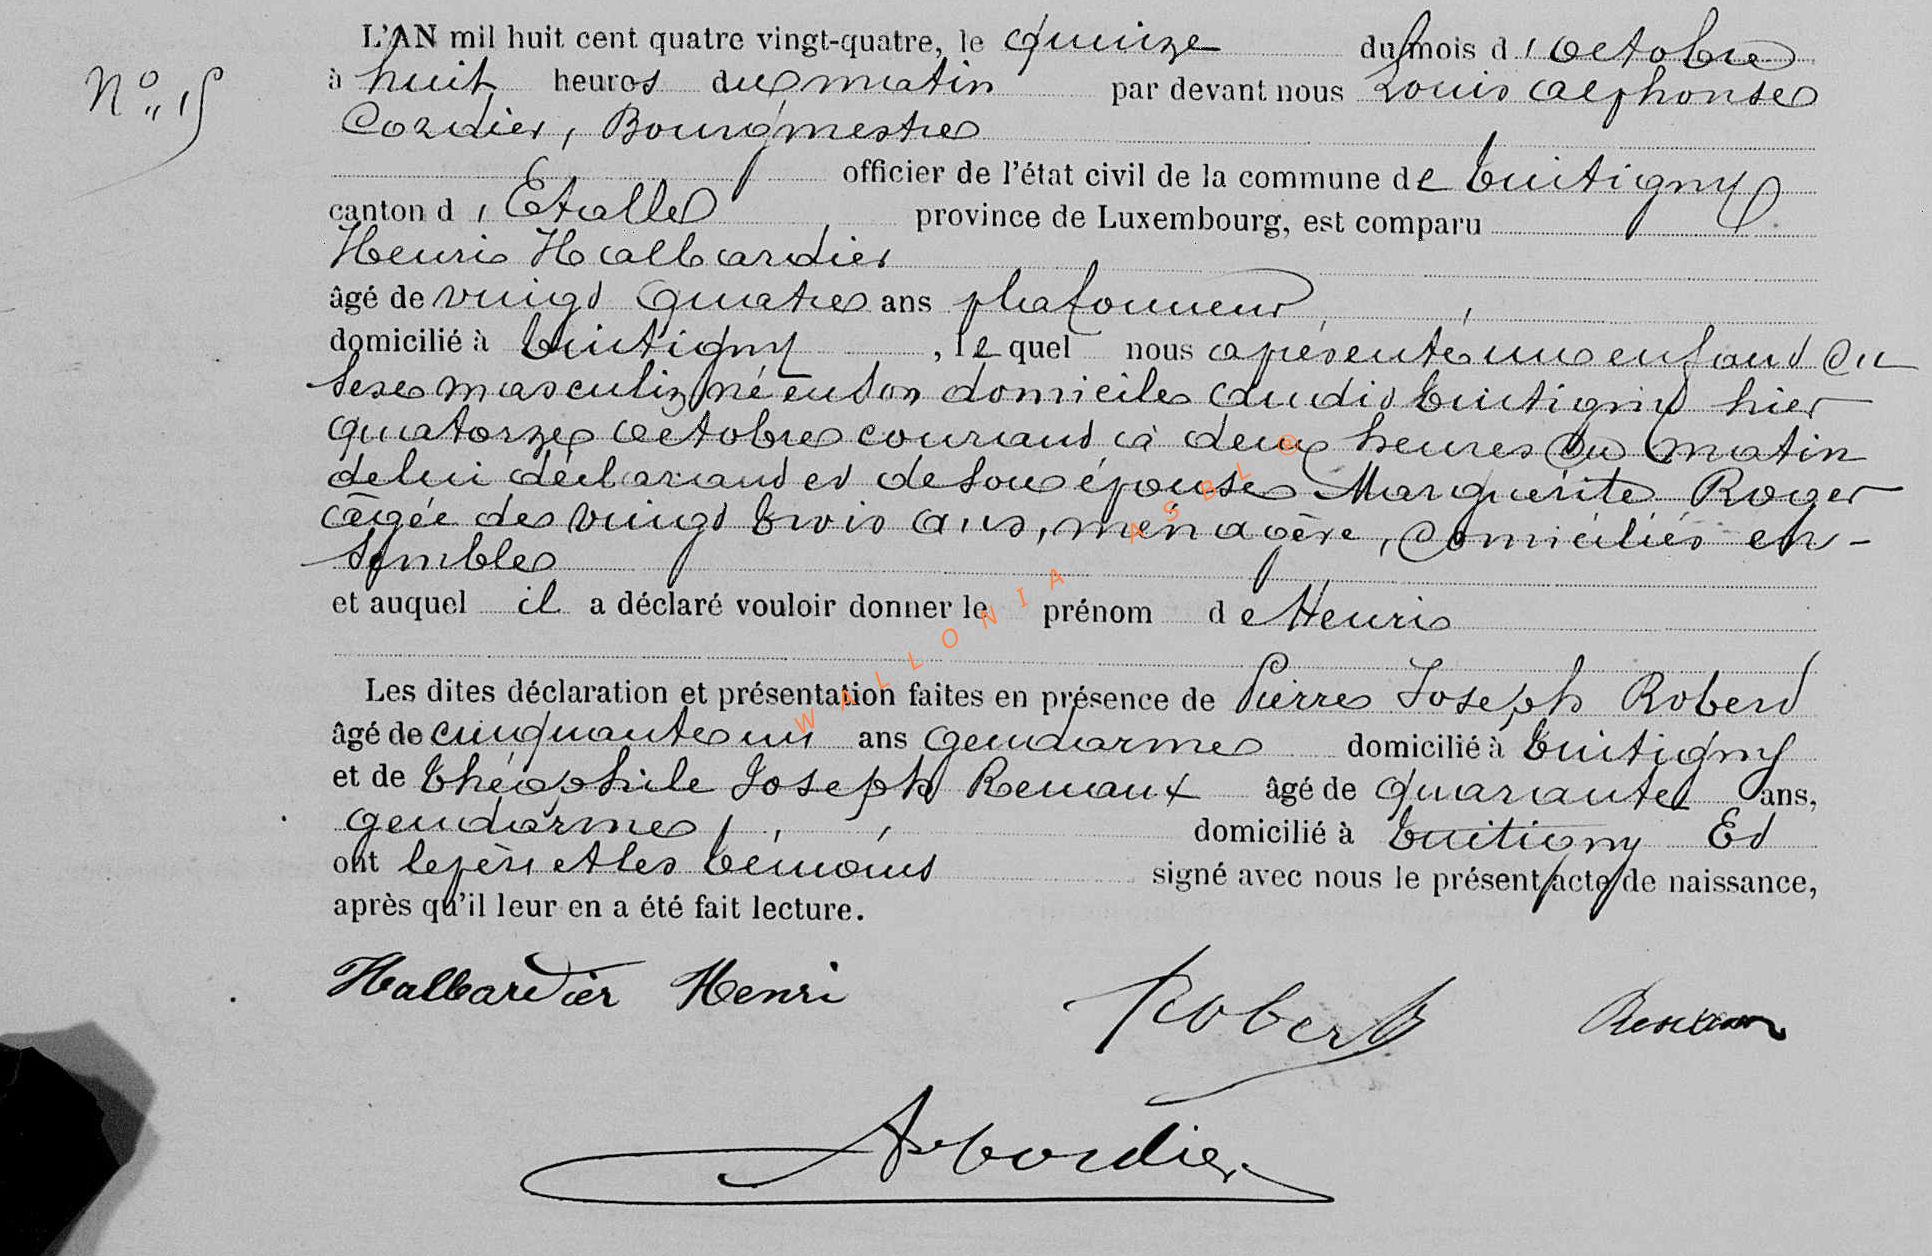 L'AN mil huit cent quatre vingt-quatre, le quinze du mois d'octobre
N° 15
à huit heures du matin par devant nous Louis Alphonse
Cordier, Bourgmestre
officier de l'état civil de la commune de Tintigny
canton d'Etalle province de Luxembourg, est comparu
Henri Halbardier
âgé de vingt quatre ans plafonneur
domicilié à Tintigny, lequel nous a présenté un enfant du
sexe masculin né en son domicile audit Tintigny hier
quatorze octobre courant à deux heures du matin
de lui déclarant et de son épouse Marguerite Roger
âgée de vingt trois ans, ménagère, domiciliés en-
semble
et auquel il a déclaré vouloir donner le prénom de Henri
Les dites déclaration et présentation faites en présence de Pierre Joseph Robert
âgé de cinquante un ans gendarme domicilié à Tintigny
et de Théophile Joseph Remaux âgé de quarante ans,
gendarme, domicilié à Tintigny Et
ont le père et les témoins signé avec nous le présent acte de naissance,
après qu'il leur en a été fait lecture.
Halbardier Henri Robert
WALLONIA ASBL ©